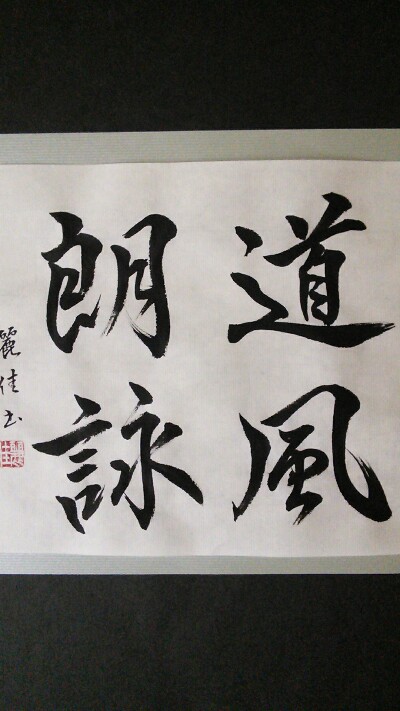 道風
朗詠
麗佳书